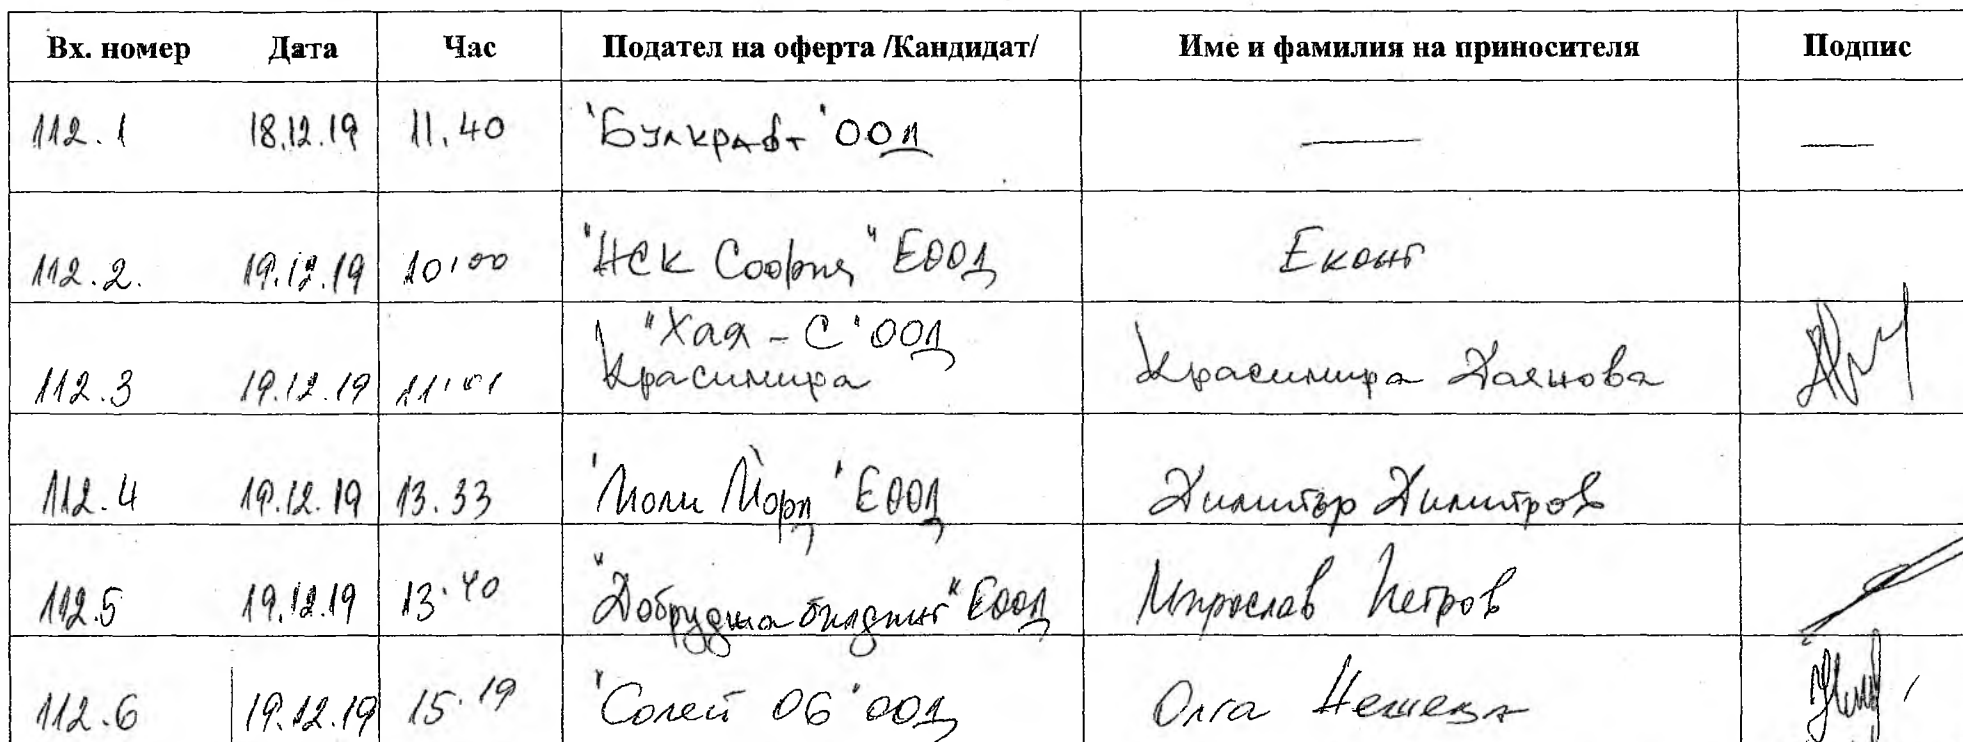 Вх. номер Дата Час Подател на оферта /Кандидат/ Име и фамилия на приносителя Подпис
112.1 18.12.19 11.40 "Булкрафт" ООД — —
112.2. 19.12.19 10:00 "НСК София" ЕООД Еконт
"Хая - С" ООД
112.3 19.12.19 11:01 Красимира Красимира Даянова
112.4 19.12.19 13.33 "Поли Порд" ЕООД Димитър Димитров
112.5 19.12.19 13.40 "Добруджа билдинг" ЕООД Мирослав Петров
112.6 19.12.19 15.19 "Солей 06" ООД Олга